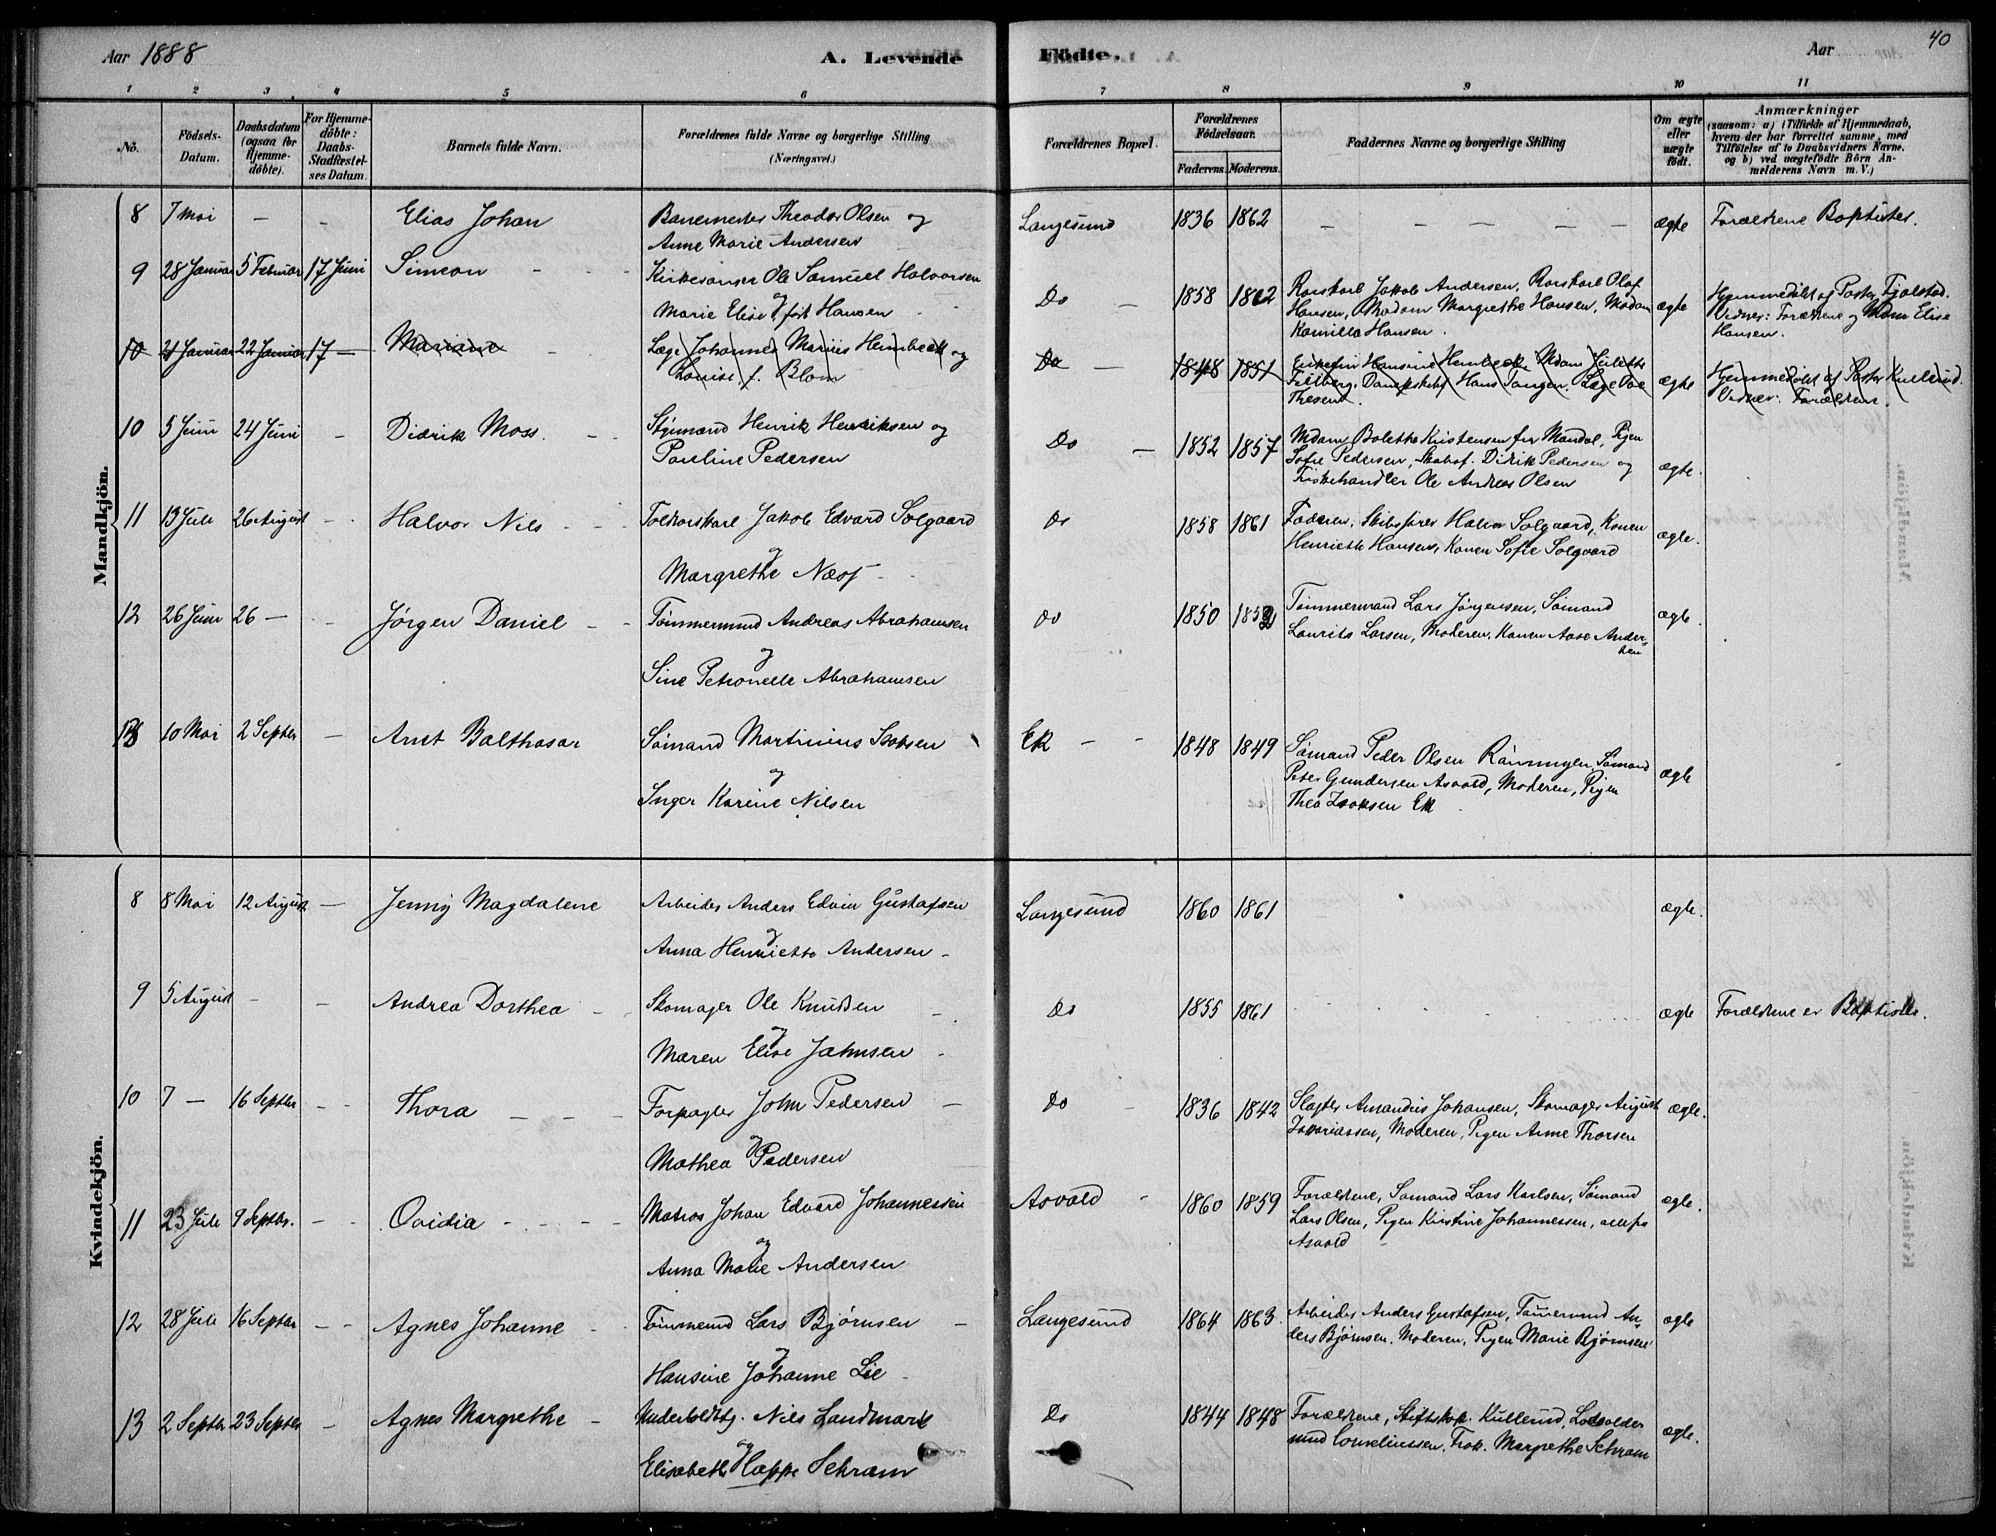 Aar 1888
A. Levende
Födte.
Aar
40
1 2 3 4 5 6 7 8 9 10 11
No.
Födsels-Datum.
Daabsdatum (ogsaa for Hjemme-döbte).
For Hjemme-döbte: Daabs-Stadfæstel-ses Datum.
Barnets fulde Navn.
Forældrenes fulde Navne og borgerlige Stilling
(Næringsvei.)
Forældrenes Bopæl.
Forældrenes Födselsaar.
Faderens. Moderens.
Faddernes Navne og borgerlige Stilling
Om ægte eller uægte födt.
Anmærkninger
(saasom: a) i Tilfælde af Hjemmedaab, hvem der har forrettet samme, med Tilföielse af to Daabsvidners Navne. og b) ved uægtefödte Börn An-melderens Navn m. V.)
Mandkjön.
8 7 Mai – – Elias Johan Banemester Theodor Olsen og Langesund 1836 1862 – – – – – ægte Forældrene Baptister.
Anne Marie Andersen
9 28 Januar 5 Februar 17 Juni Simeon – – Kirkesanger Ole Samuel Halvorsen Do – 1858 1862 Rorskarl Jakob Andersen, Rorskarl Olaf ægte Hjemmedöbt af Pastor Fjalstad.
og
Marie Elise født Hansen Hansen, Madam Margrethe Hansen, Madam Vidner: Forældrene og Mdm Elise
Kamilla Hansen. Hansen.
10 21 Januar 22 Januar 17 – Mariane Læge Johannes Marius Heimbeck og Do – 1848 1851 Hansine Heimbeck, Mdam Juliette ægte Hjemmedöbt af Pastor Kullerud.
Louise f. Blom Dampskibsf Hans Tangen. Læge Vidner: Forældrene.
Thesen.
10 5 Juni 24 Juni – Didrik Moss. – – Styrmand Henrik Henriksen og Do – 1852 1857 Mdam Bolette Kristensen fra Mandal, Pigen ægte.
Pauline Pedersen Sofie Pedersen, Skibsf. Didrik Pedersen og
Fiskehandler Ole Andreas Olsen
11 13 Juli 26 August – Halvor Nils – – Toldrorskarl Jakob Edvard Solgaard Do 1858 1861 Faderen, Skibsfører Halvor Solgaard, Konen ægte.
og
Margrethe Næss – Henriette Hansen, Konen Sofie Solgaard
12 26 Juni 26 – – Jørgen Daniel – – Tømmermand Andreas Abrahamsen Do 1850 1852 Tømmermand Lars Jørgensen, Sømand ægte.
og
Sine Petronelle Abrahamsen Laurits Larsen, Moderen, Konen Aase Ander-
sen
13 10 Mai 2 Septbr – Arnt Balthasar Sømand Martinius Isaksen Ek – – 1848 1849 Sømand Peder Olsen Rønningen, Sømand ægte
og
Inger Karine Nilsen Peter Gundersen Asvald, Moderen, Pigen
Thea Isaksen Ek
Kvindekjön.
8 8 Mai 12 August – Jenny Magdalene Arbeider Anders Edvin Gustafsen Langesund 1860 1861 ægte.
og
Anna Henriette Andersen –
9 5 August – – Andrea Dorthea – Skomager Ole Knudsen – Do 1855 1861 ægte Forældrene er Baptister.
og
Maren Elise Jahnsen –
10 7 – 16 Septbr – – Thora – – – Forpagter John Pedersen – Do – 1836 1842 Slagter Amandus Johansen, Skomager August ægte.
og
Mathea Pedersen Zakariassen, Moderen, Pigen Anne Thorsen
11 23 Juli 9 Septbr. – – Ovidia – – – – Matros Johan Edvard Johannessen Asvald – 1860 1859 Forældrene, Sømand Lars Karlsen, Sømand ægte.
og
Anna Marie Andersen Lars Olsen, Pigen Kristine Johannessen, alle fra
Asvald –
12 28 Juli 16 Septbr – – Agnes Johanne – Tømmermd Lars Bjørnsen – Langesund 1864 1863. Arbeider Anders Gustafsen, Tømmermd An- ægte
og
Hansine Johanne Lie – ders Bjørnsen, Moderen, Pigen Marie Bjørnsen
13 2 Septbr 23 Septbr – Agnes Margrethe – Undertoldbtj. Nils Landmark Do 1844 1848 Forældrene, Stiftskap. Kullerud, Lodsolder- ægte.
og
Elisabeth Hoppe Schram mnd Corneliussen, Frøk. Margrethe Schram